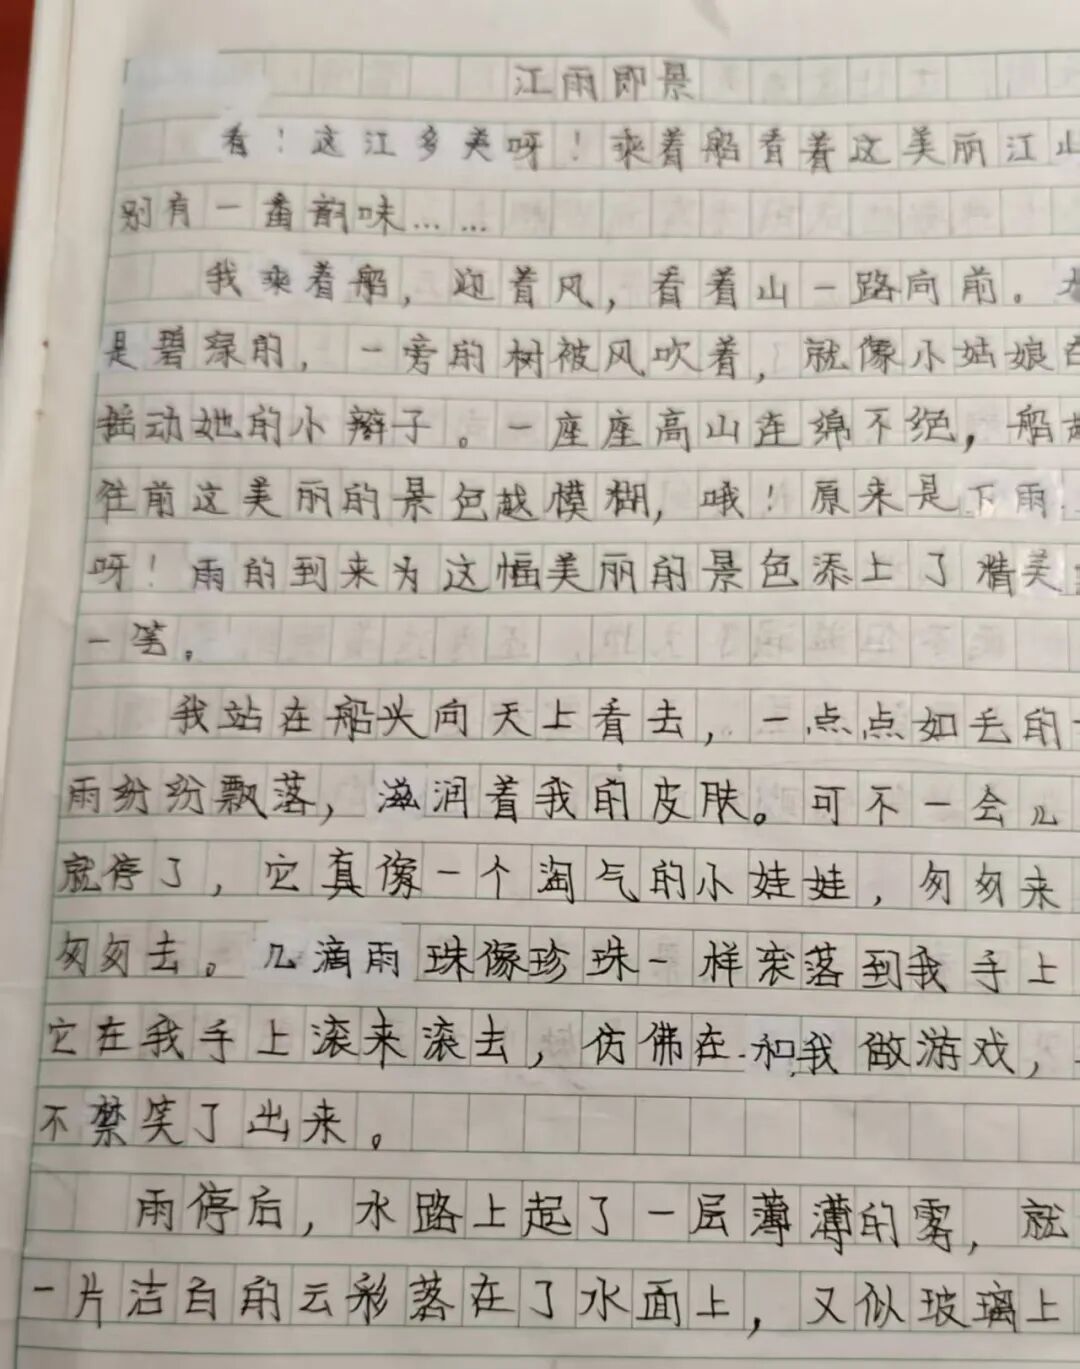 江雨即景
看！这江多美呀！乘着船看着这美丽江山
别有一番韵味……
我乘着船，迎着风，看着山一路向前。
是碧绿的，一旁的树被风吹着，就像小姑娘在
摇动她的小辫子。一座座高山连绵不绝，船越
往前这美丽的景色越模糊，哦！原来是下雨
呀！雨的到来为这幅美丽的景色添上了精美
一笔。
我站在船头向天上看去，一点点如毛的
雨纷纷飘落，滋润着我的皮肤。可不一会儿
就停了，它真像一个淘气的小娃娃，匆匆来
匆匆去。几滴雨珠像珍珠一样滚落到我手上
它在我手上滚来滚去，仿佛在和我做游戏，
不禁笑了出来。
雨停后，水路上起了一层薄薄的雾，就
一片洁白的云彩落在了水面上，又似玻璃上